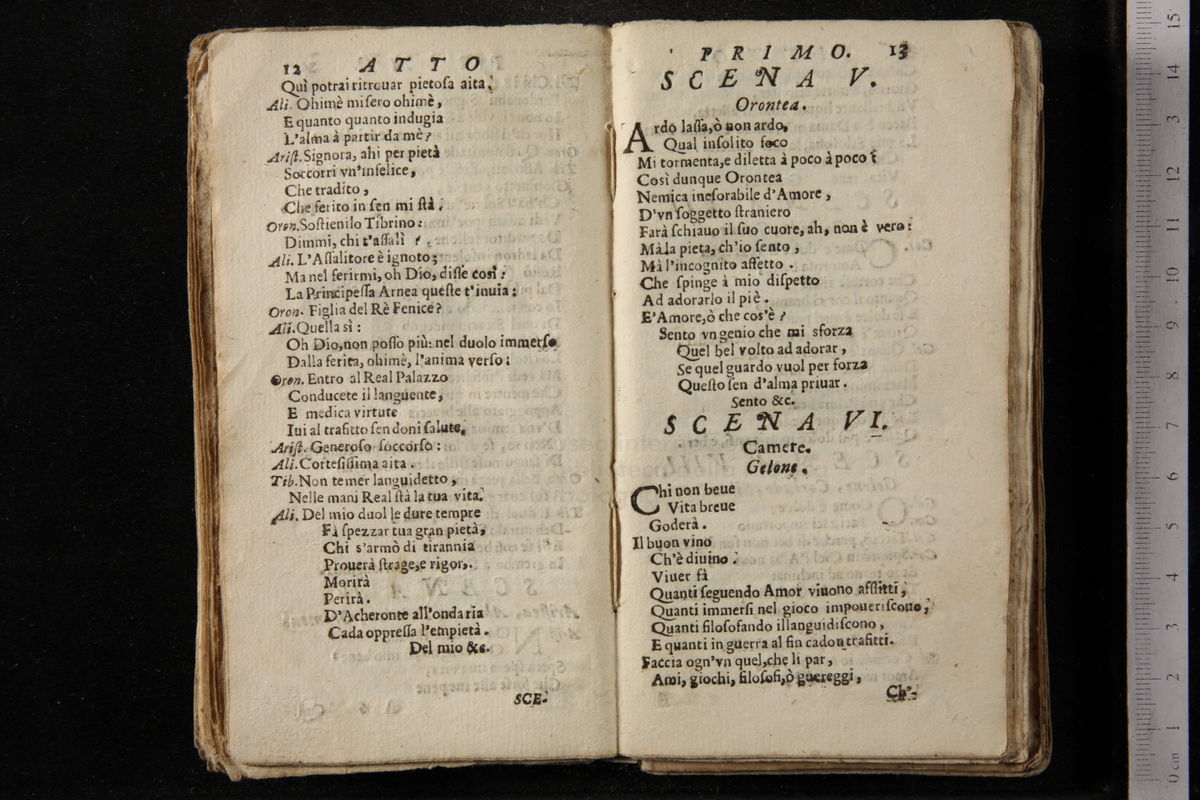 12 ATTO
Quì potrai ritrouar pietoſa aita.
Ali. Ohimè miſero ohimè,
E quanto quanto indugia
L'alma à partir da mè?
Ariſt. Signora, ahi per pietà
Soccorri vn'infelice,
Che tradito,
Che ferito in ſen mi ſtà.
Oron. Soſtienilo Tibrino:
Dimmi, chi t'aſſalì?
Ali. L'Aſſalitore è ignoto;
Ma nel ferirmi, oh Dio, diſſe così:
La Principeſſa Arnea queſte t'inuia:
Oron. Figlia del Rè Fenice?
Ali. Quella sì:
Oh Dio, non poſſo più: nel duolo immerſo
Dalla ferita, ohimè, l'anima verſo:
Oron. Entro al Real Palazzo
Conducete il languente,
E medica virtute
Iui al trafitto ſen doni ſalute.
Ariſt. Generoſo ſoccorſo:
Ali. Corteſiſſima aita.
Tib. Non temer languidetto,
Nelle mani Real ſtà la tua vita.
Ali. Del mio duol le dure tempre
Fà ſpezzar tua gran pietà,
Chi s'armò di tirannia
Prouerà ſtrage, e rigor,
Morirà
Perirà.
D'Acheronte all'onda ria
Cada oppreſſa l'empietà.
Del mio &c.
SCE-
PRIMO. 13
SCENA V.
Orontea.
Ardo laſſa, ò non ardo,
Qual inſolito foco
Mi tormenta, e diletta à poco à poco?
Così dunque Orontea
Nemica ineſorabile d'Amore,
D'vn ſoggetto ſtraniero
Farà ſchiauo il ſuo cuore, ah, non è vero:
Mà la pieta, ch'io ſento,
Mà l'incognito affetto.
Che ſpinge à mio diſpetto
Ad adorarlo il piè.
E'Amore, ò che cos'è?
Sento vn genio che mi sforza
Quel bel volto ad adorar,
Se quel guardo vuol per forza
Queſto ſen d'alma priuar.
Sento &c.
SCENA VI.
Camere.
Gelone.
Chi non beue
Vita breue
Goderà.
Il buon vino
Ch'è diuino.
Viuer fà
Quanti ſeguendo Amor viuono afflitti,
Quanti immerſi nel gioco impoueriſcono,
Quanti filoſofando illanguidiſcono,
E quanti in guerra al fin cadon trafitti.
Faccia ogn'vn quel, che li par,
Ami, giochi, filoſofi, ò guereggi,
Ch'-